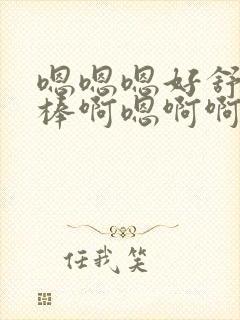 嗯嗯嗯好舒
棒啊嗯啊啊
任我笑